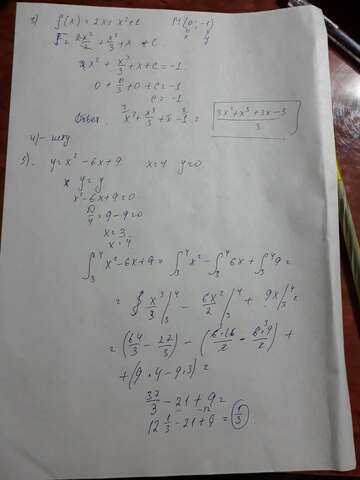 3) f(x) = 2x + x² + 1 M(0; -1)
F = 2x²/2 + x³/3 + x + C.
x² + x³/3 + x + C = -1
0 + 0/3 + 0 + C = -1
C = -1
Ответ: x² + x³/3 + x - 1 = (3x² + x³ + 3x - 3)/3
4) - нету
5). y = x² - 6x + 9 x = 4 y = 0
y = y
x² - 6x + 9 = 0
D/4 = 9 - 9 = 0
x = 3
x = 4
∫₃⁴ x² - 6x + 9 = ∫₃⁴ x² - ∫₃⁴ 6x + ∫₃⁴ 9 =
= x³/3 |₃⁴ - 6x²/2 |₃⁴ + 9x |₃⁴ =
= (64/3 - 27/3) - (6·16/2 - 6·9/2) +
+ (9·4 - 9·3) =
37/3 - 21 + 9 =
12 1/3 - 21 + 9 = 1/3